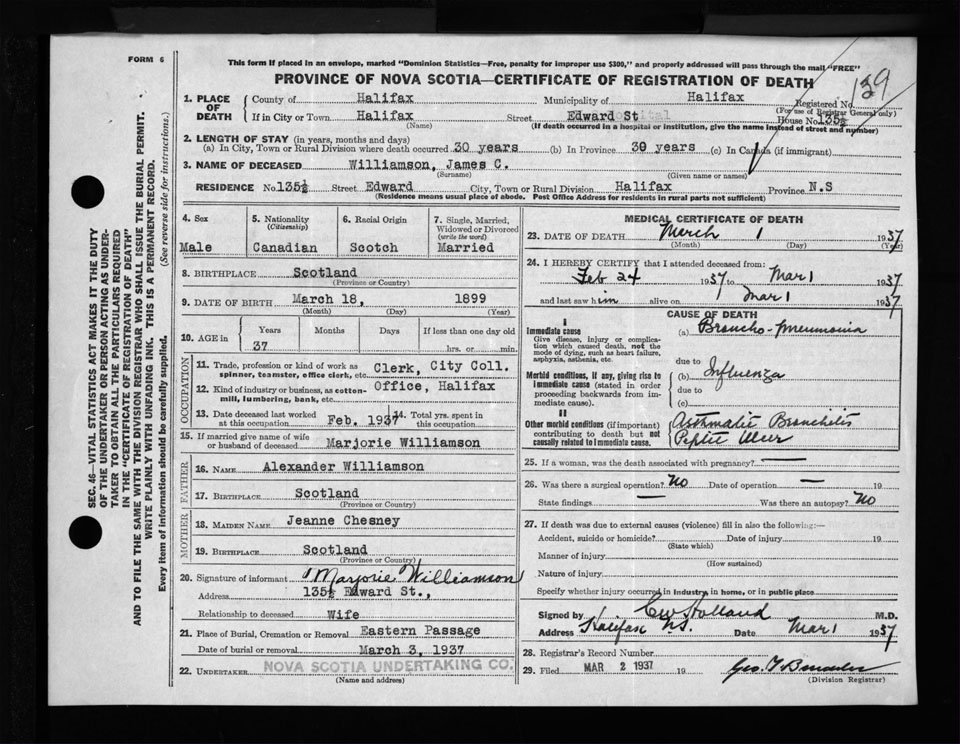 FORM 6
This form if placed in an envelope, marked "Dominion Statistics—Free, penalty for improper use $300," and properly addressed will pass through the mail "FREE"
PROVINCE OF NOVA SCOTIA—CERTIFICATE OF REGISTRATION OF DEATH
139
1. PLACE OF DEATH
County of Halifax Municipality of Halifax Registered No.
(For use of Registrar General only)
If in City or Town Halifax Street Edward St House No. 135½
(Name) (If death occurred in a hospital or institution, give the name instead of street and number)
2. LENGTH OF STAY (in years, months and days)
(a) In City, Town or Rural Division where death occurred 30 years (b) In Province 30 years (c) In Canada (if immigrant)
3. NAME OF DECEASED Williamson, James C.
(Surname) (Given name or names)
RESIDENCE No. 135½ Street Edward City, Town or Rural Division Halifax Province N.S
(Residence means usual place of abode. Post Office Address for residents in rural parts not sufficient)
4. Sex 5. Nationality 6. Racial Origin 7. Single, Married, Widowed or Divorced
(Citizenship) (write the word)
Male Canadian Scotch Married
8. BIRTHPLACE Scotland
(Province or Country)
9. DATE OF BIRTH March 18, 1899
(Month) (Day) (Year)
10. AGE in Years Months Days If less than one day old
37 hrs. or min.
OCCUPATION
11. Trade, profession or kind of work as spinner, teamster, office clerk, etc. Clerk, City Coll.
12. Kind of industry or business, as cotton-mill, lumbering, bank, etc. Office, Halifax
13. Date deceased last worked at this occupation Feb. 1937 14. Total yrs. spent in this occupation
15. If married give name of wife or husband of deceased Marjorie Williamson
FATHER
16. NAME Alexander Williamson
17. BIRTHPLACE Scotland
(Province or Country)
MOTHER
18. MAIDEN NAME Jeanne Chesney
19. BIRTHPLACE Scotland
(Province or Country)
20. Signature of informant Marjorie Williamson
Address 135½ Edward St.,
Relationship to deceased Wife
21. Place of Burial, Cremation or Removal Eastern Passage
Date of burial or removal March 3, 1937
22. UNDERTAKER NOVA SCOTIA UNDERTAKING CO.
(Name and address)
MEDICAL CERTIFICATE OF DEATH
23. DATE OF DEATH March 1 1937
(Month) (Day) (Year)
24. I HEREBY CERTIFY that I attended deceased from:
Feb 24 1937 to Mar 1 1937
and last saw him alive on Mar 1 1937
CAUSE OF DEATH
I
Immediate cause (a) Broncho-pneumonia
Give disease, injury or complication which caused death, not the mode of dying, such as heart failure, asphyxia, asthenia, etc.
due to
Morbid conditions, if any, giving rise to immediate cause (stated in order proceeding backwards from immediate cause).
(b) Influenza
due to
(c)
II
Other morbid conditions (if important) contributing to death but not causally related to immediate cause.
Asthmatic Bronchitis
Peptic Ulcer
25. If a woman, was the death associated with pregnancy? —
26. Was there a surgical operation? No Date of operation — 19
State findings — Was there an autopsy? No
27. If death was due to external causes (violence) fill in also the following:—
Accident, suicide or homicide? Date of injury 19
(State which)
Manner of injury
(How sustained)
Nature of injury
Specify whether injury occurred in industry, in home, or in public place
Signed by C W Holland M.D.
Address Halifax N.S. Date Mar 1 1937
28. Registrar's Record Number
29. Filed MAR 2 1937 19 Geo. T.
(Division Registrar)
SEC. 46—VITAL STATISTICS ACT MAKES IT THE DUTY
OF THE UNDERTAKER OR PERSON ACTING AS UNDER-
TAKER TO OBTAIN ALL THE PARTICULARS REQUIRED
IN THE "CERTIFICATE OF REGISTRATION OF DEATH"
AND TO FILE THE SAME WITH THE DIVISION REGISTRAR WHO SHALL ISSUE THE BURIAL PERMIT.
WRITE PLAINLY WITH UNFADING INK. THIS IS A PERMANENT RECORD.
Every item of information should be carefully supplied. (See reverse side for instructions.)